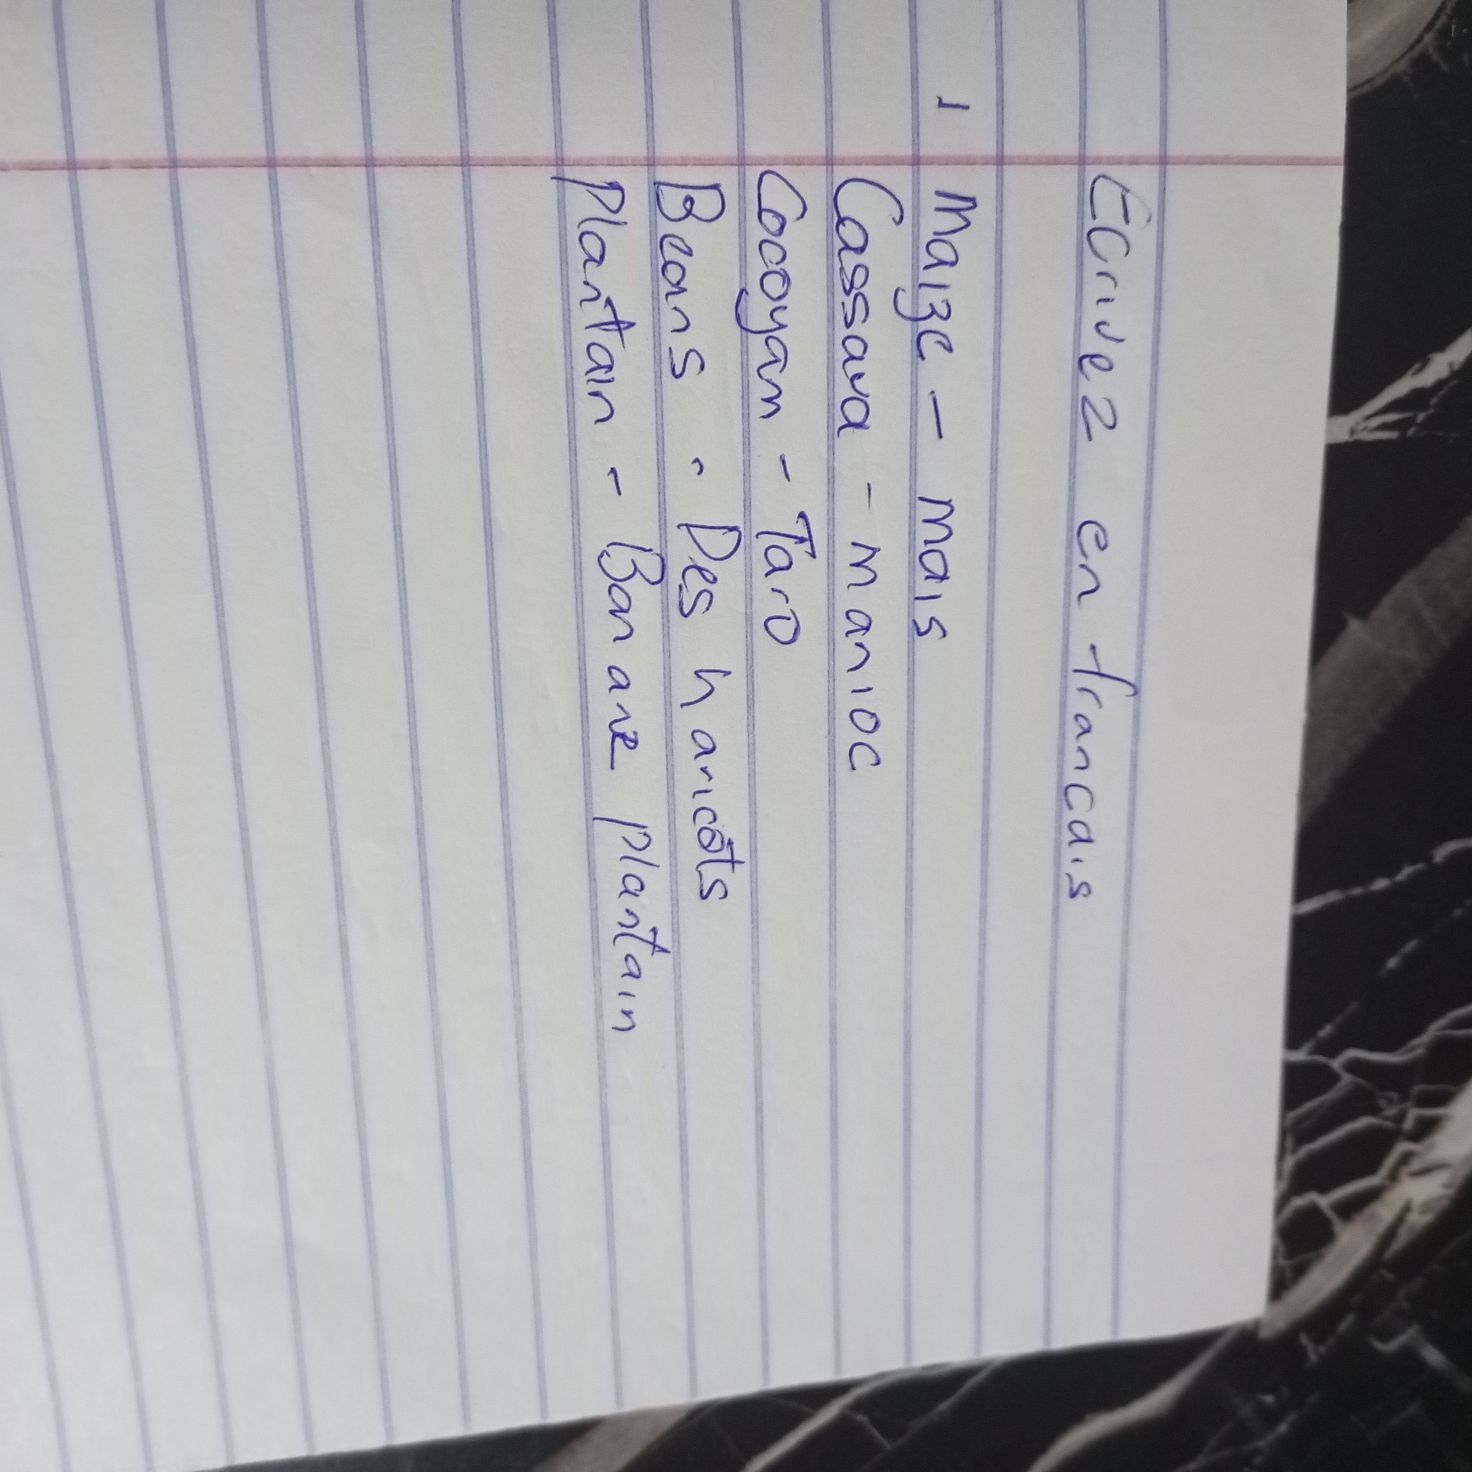 Ecrivez en francais
1 Maize - mais
Cassava - manioc
Cocoyam - Taro
Beans - Des haricots
Plantain - Banane plantain